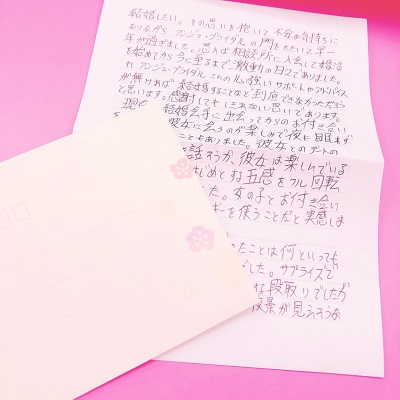 結婚したい。その思いを抱いて不安な気持ちに
なりながらアンジュ・ブライダルの門をたたいて早一
年が過ぎました。思えば相談所に入会して婚活
を始めてから今に至るまで激動の日々でありました。
アンジュ・ブライダルさんの心強いサポートやアドバイス
が無ければ結婚することなど到底できなかっただろう
と思います。感謝してもしきれない思いであります。
結婚相手に出会ってからのお付き合い
彼女に会うのが楽しみで夜も眠れず
こともありました。彼女とのデートの
話そうか、彼女は楽しんでいる
はじめとする五感をフル回転
した。女の子とお付き合い
ギーを使うことだと実感しま
ったことは何といっても
でした。サプライズで
な段取りでしたが
夜景が見えそうな